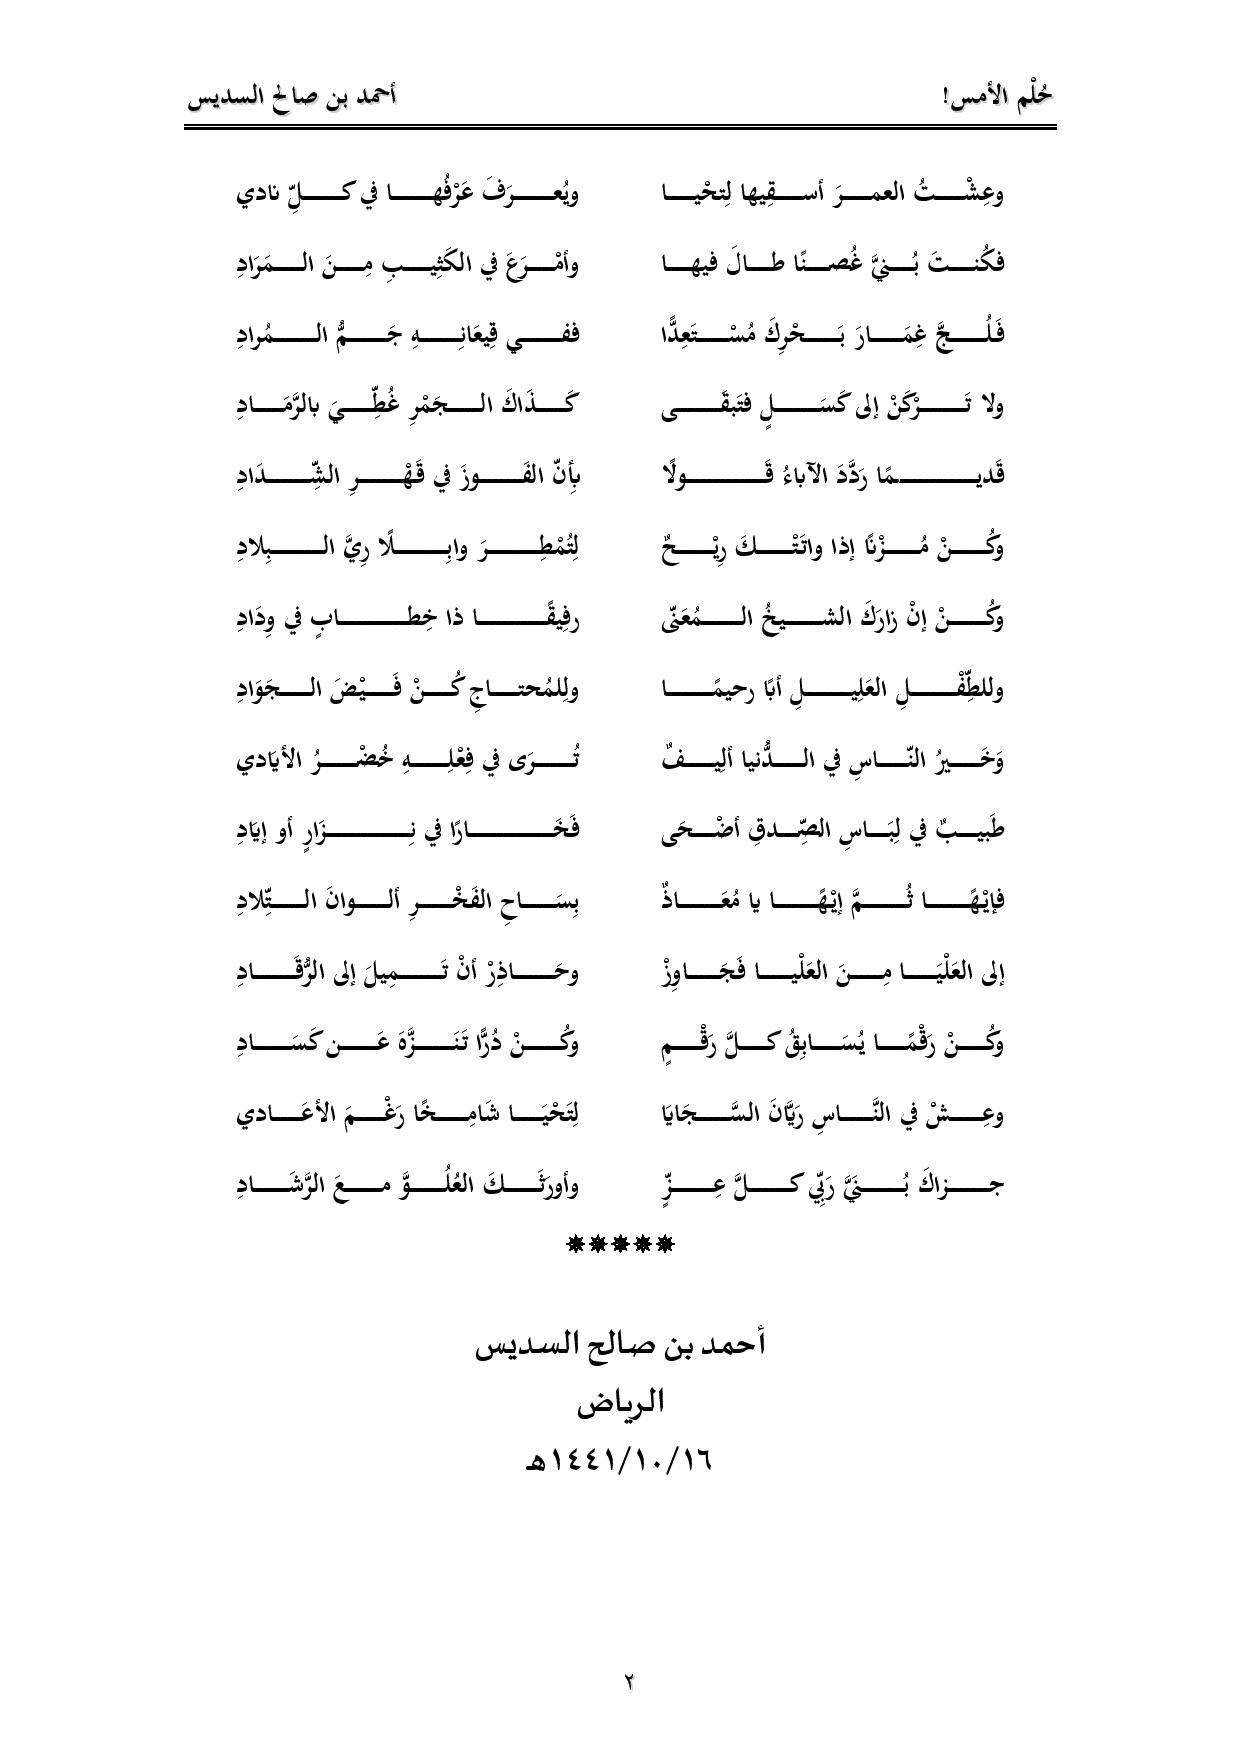 حُلْم الأمس! أحمد بن صالح السديس
وعِشْتُ العمرَ أسقِيها لِتحْيا ويُعرَفَ عَرْفُها في كلِّ نادي
فكُنتَ بُنيَّ غُصنًا طالَ فيها وأمْرَعَ في الكَثِيبِ مِنَ المَرَادِ
فَلُجَّ غِمَارَ بَحْرِكَ مُسْتَعِدًّا ففي قِيعَانِهِ جَمُّ المُرادِ
ولا تَرْكَنْ إلى كَسَلٍ فتَبقَى كَذَاكَ الجَمْرِ غُطِّيَ بالرَّمَادِ
قَديمًا رَدَّدَ الآباءُ قَولًا بِأنّ الفَوزَ في قَهْرِ الشِّدَادِ
وكُنْ مُزْنًا إذا واتَتْكَ رِيْحٌ لِتُمْطِرَ وابِلًا رِيَّ البِلادِ
وكُنْ إنْ زارَكَ الشيخُ المُعَنّى رفِيقًا ذا خِطابٍ في وِدَادِ
وللطِّفْلِ العَلِيلِ أبًا رحيمًا ولِلمُحتاجِ كُنْ فَيْضَ الجَوَادِ
وَخَيرُ النّاسِ في الدُّنيا ألِيفٌ تُرَى في فِعْلِهِ خُضْرُ الأيَادي
طَبيبٌ في لِبَاسِ الصِّدقِ أضْحَى فَخَارًا في نِزَارٍ أو إيَادِ
فإيْهًا ثُمَّ إيْهًا يا مُعَاذٌ بِسَاحِ الفَخْرِ ألوانَ التِّلادِ
إلى العَلْيَا مِنَ العَلْيا فَجَاوِزْ وحَاذِرْ أنْ تَمِيلَ إلى الرُّقَادِ
وكُنْ رَقْمًا يُسَابِقُ كلَّ رَقْمٍ وكُنْ دُرًّا تَنَزَّهَ عَن كَسَادِ
وعِشْ في النَّاسِ رَيَّانَ السَّجَايَا لِتَحْيَا شَامِخًا رَغْمَ الأعَادي
جزاكَ بُنَيَّ رَبِّي كلَّ عِزٍّ وأورَثَكَ العُلُوَّ معَ الرَّشَادِ
*****
أحمد بن صالح السديس
الرياض
١٤٤١/١٠/١٦هـ
٢